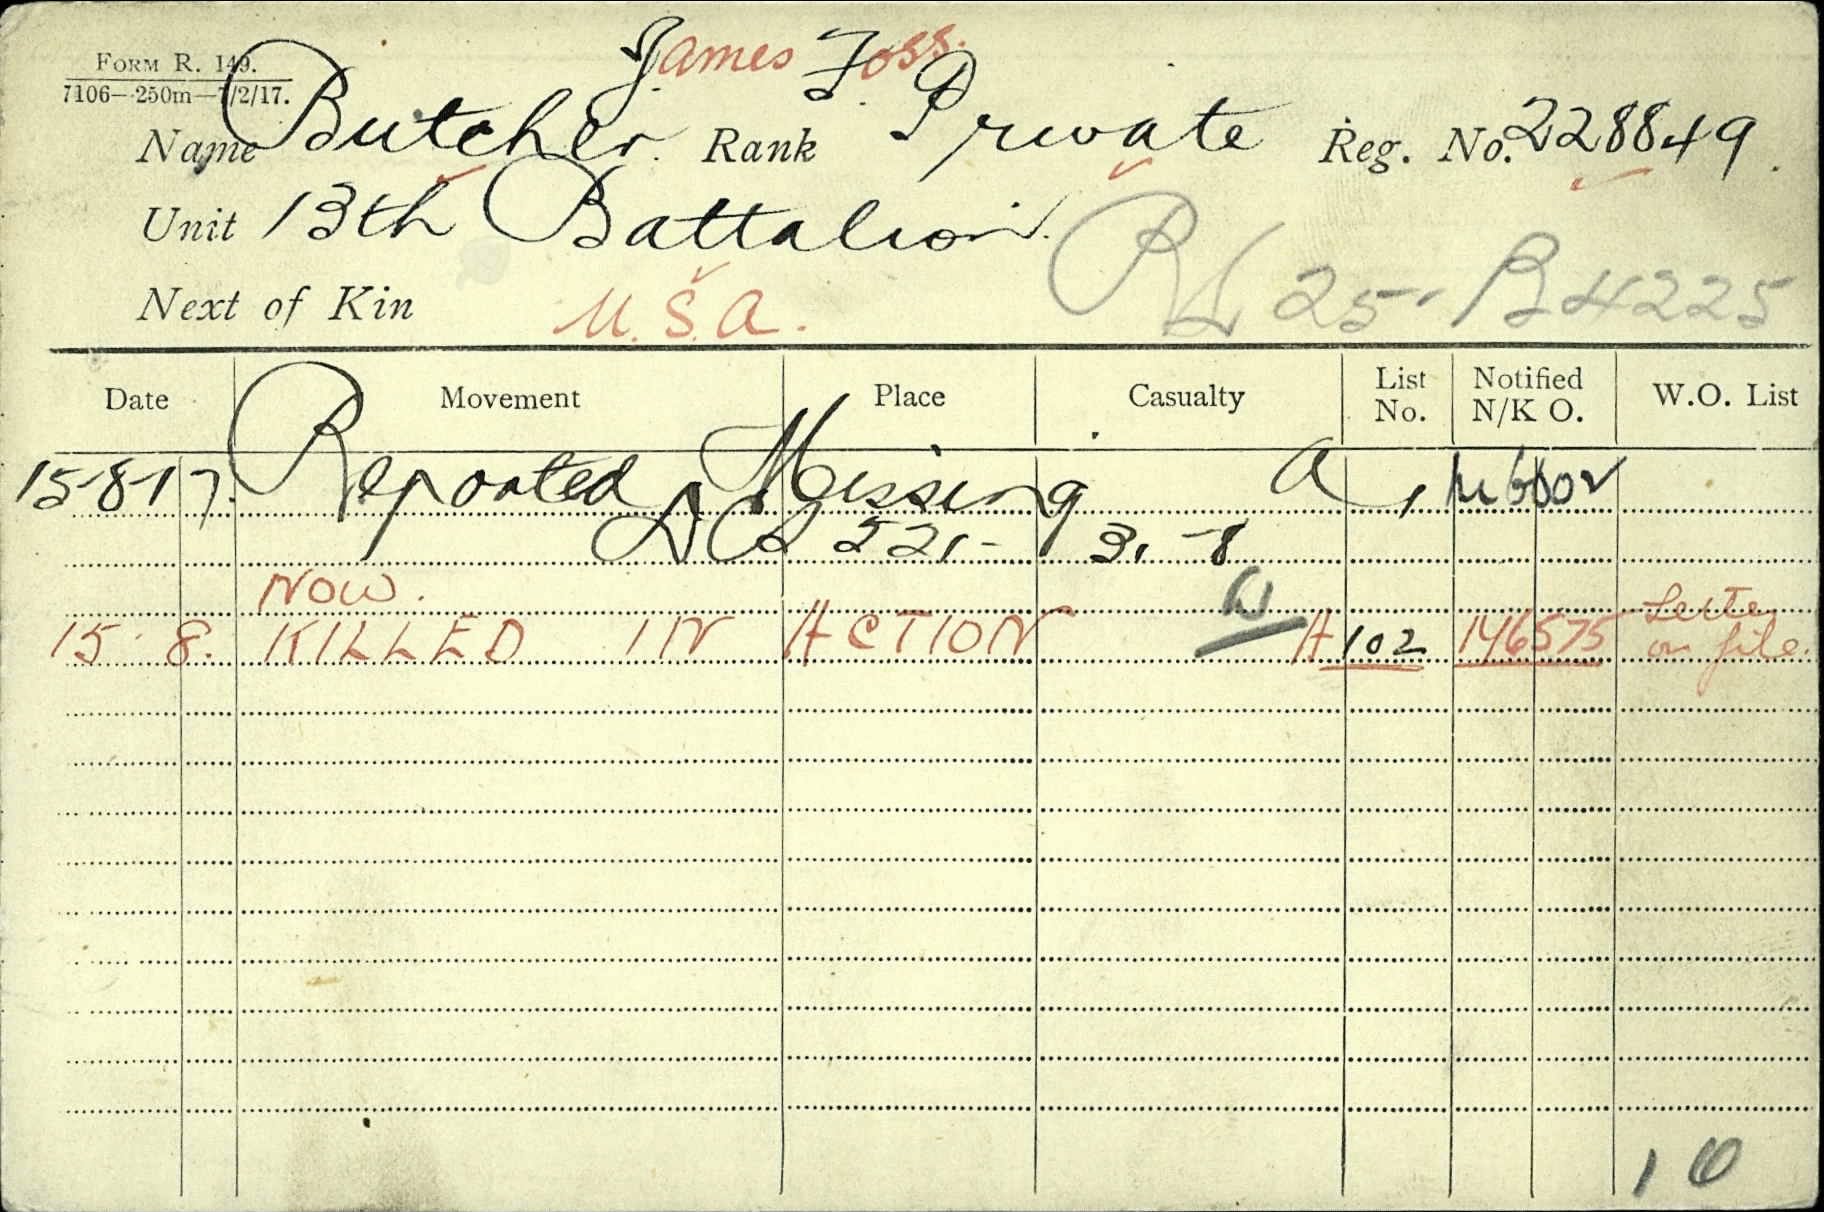 James Foss.
FORM R. 149.
7106—250m—7/2/17.
Name Butcher. Rank Private Reg. No. 228849.
Unit 13th Battalion.
RL 25. B4225
Next of Kin U.S.A.
Date Movement Place Casualty List No. Notified N/K O. W.O. List
15-8-17. Reported Missing A
521- 31-8
NOW.
15 8. KILLED IN ACTION A102 146575 Letter on file.
10